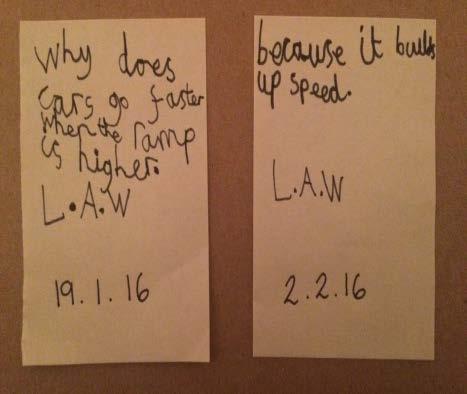 Why does
cars go faster
when the ramp
is higher.
L.A.W
19.1.16
because it builds
up speed.
L.A.W
2.2.16